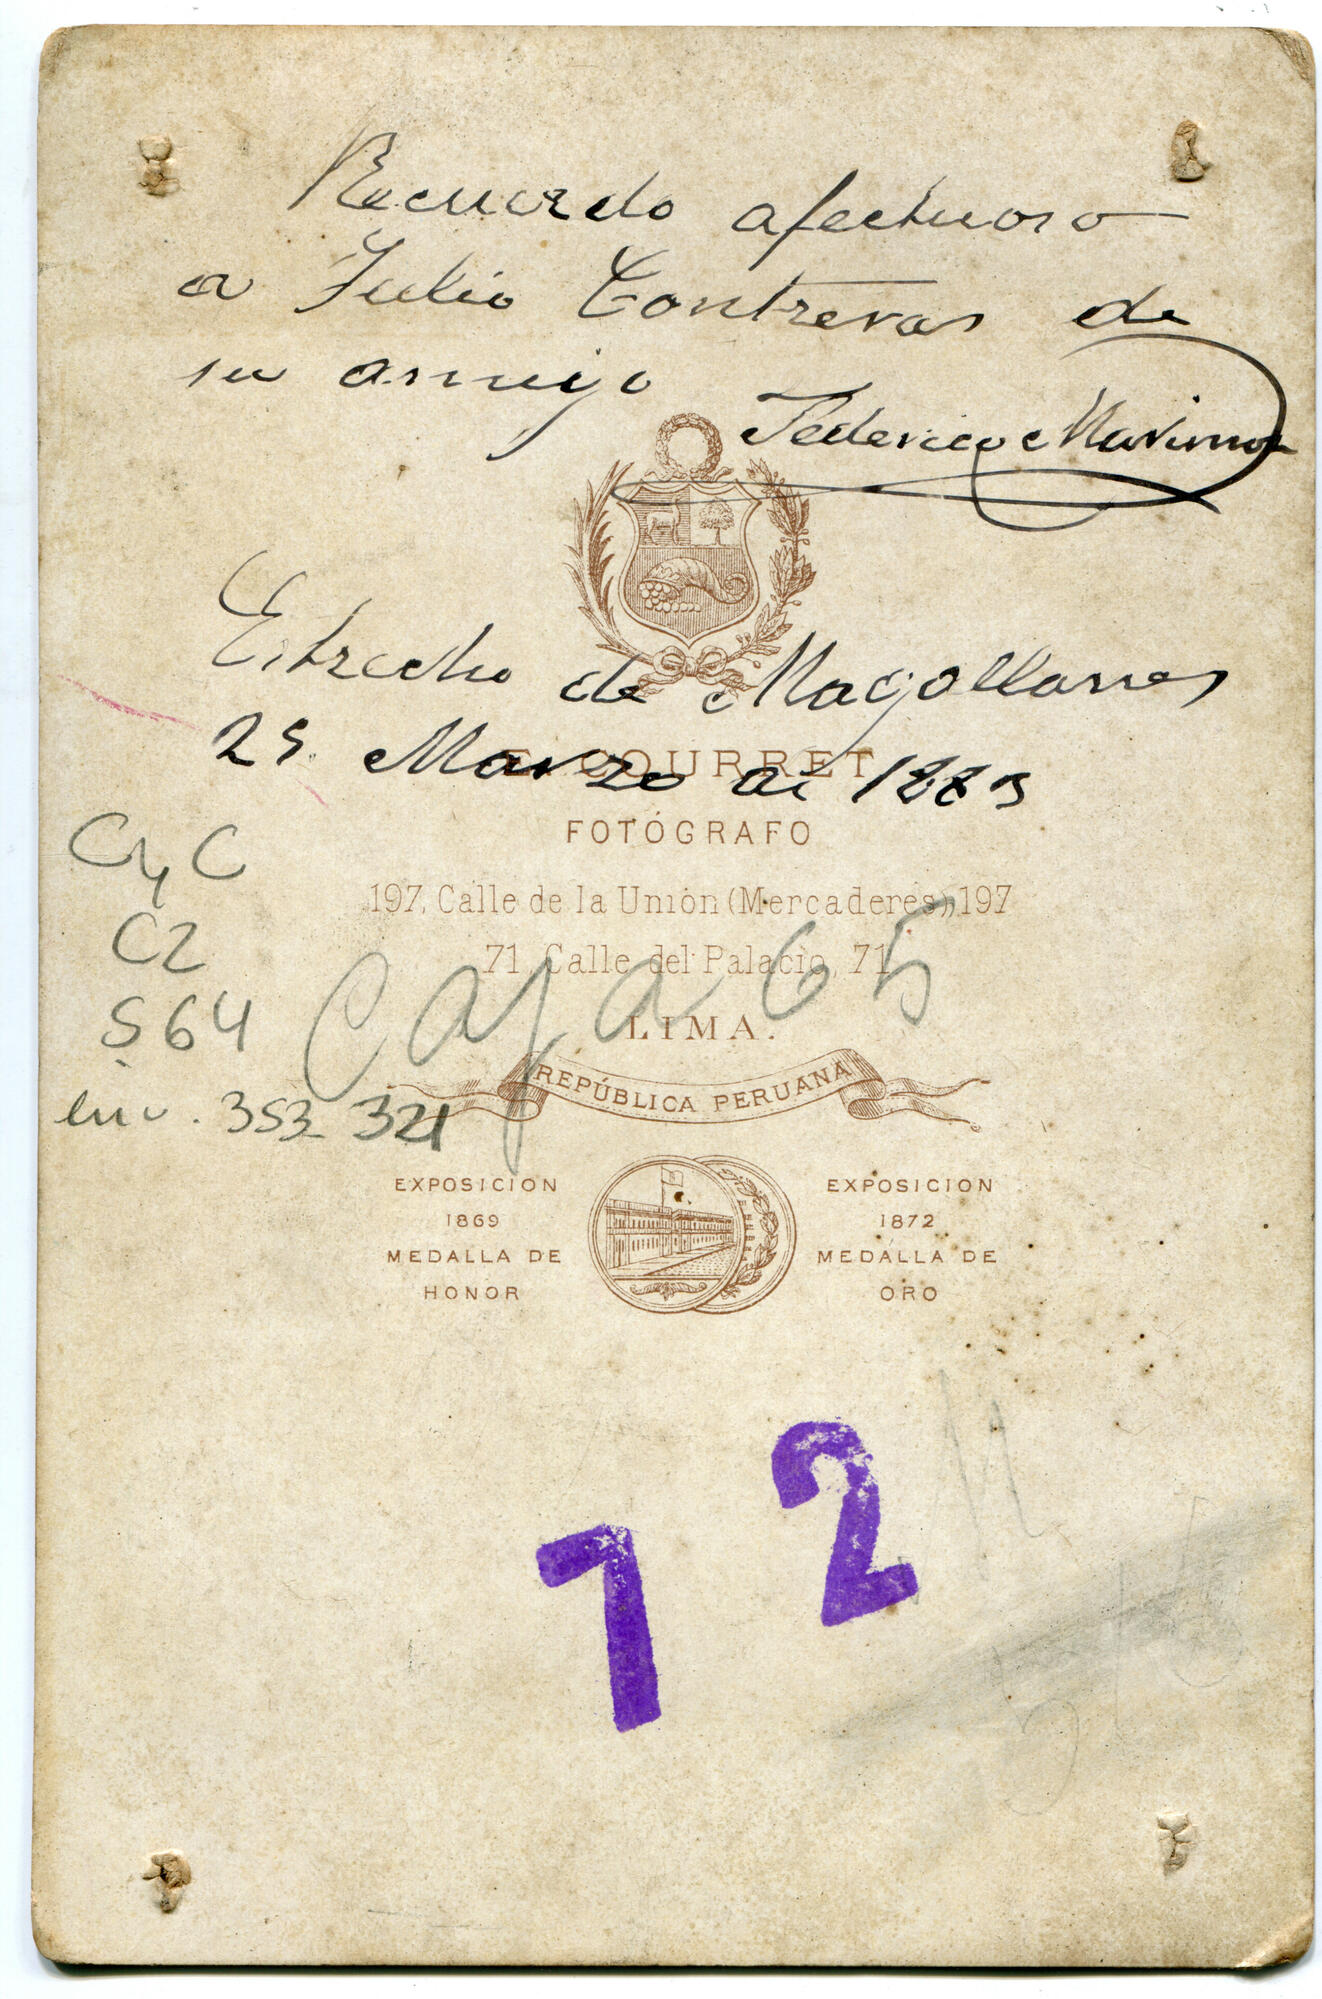 Recuerdo afectuoso
a Julio Contreras de
su amigo
Federico
Estrecho de Magallanes
25 Marzo de 1883
E. COURRET
FOTÓGRAFO
197, Calle de la Unión (Mercaderes), 197
71, Calle del Palacio, 71
LIMA.
REPÚBLICA PERUANA
CyC
C2
S64
inv. 353 321
Caja 65
EXPOSICION
1869
MEDALLA DE
HONOR
EXPOSICION
1872
MEDALLA DE
ORO
72